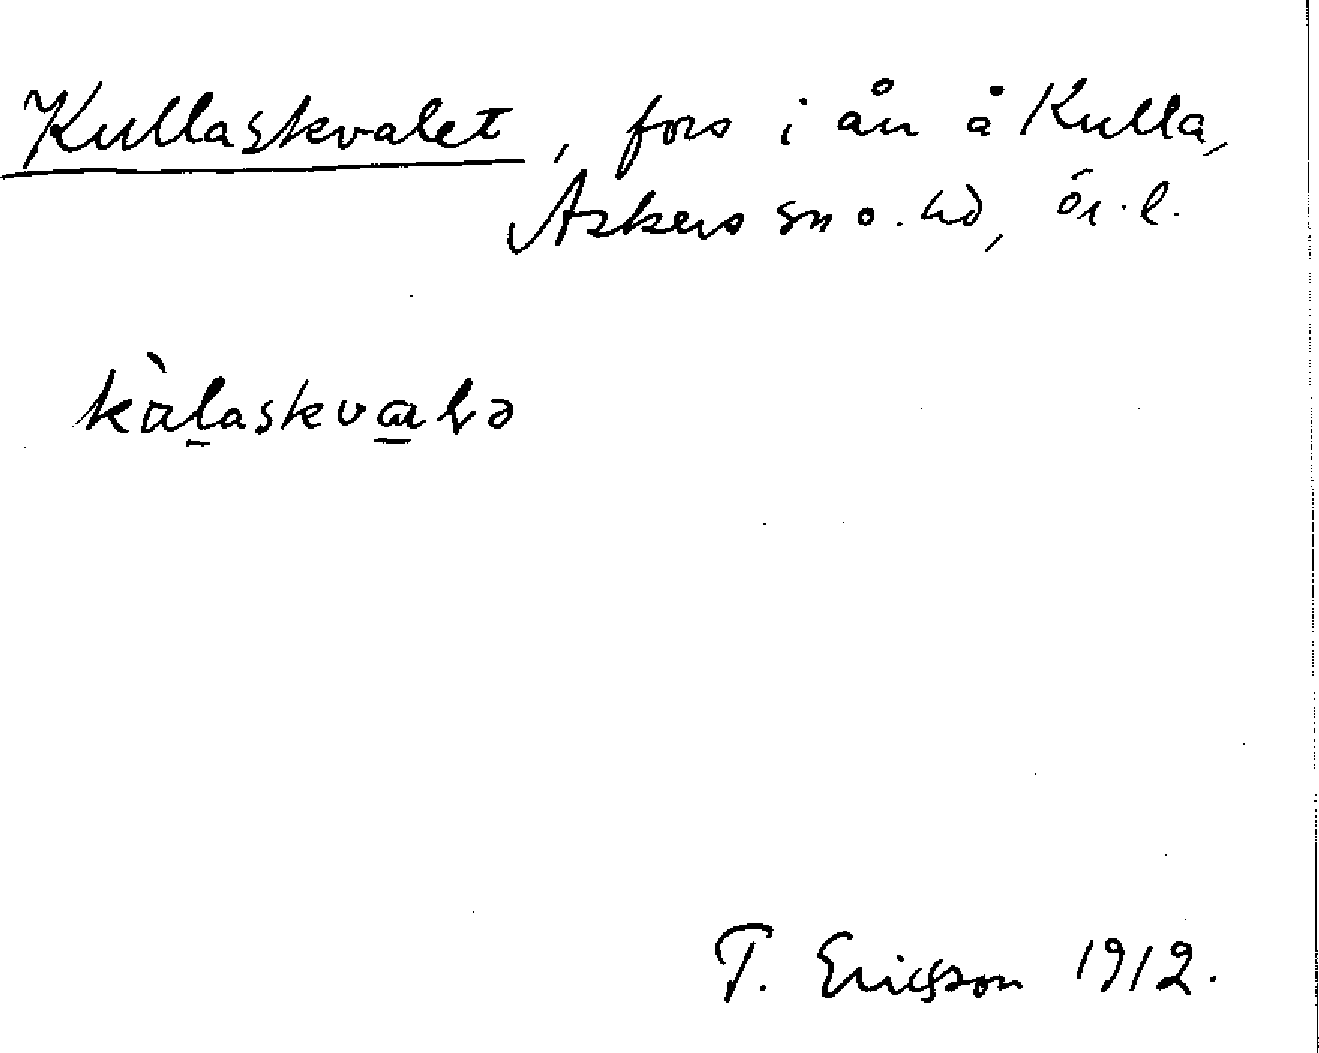 Kullaskvalet, fors i ån å Kulla,
Askers sn o. hd, ör. l.
T. Ericsson 1912.